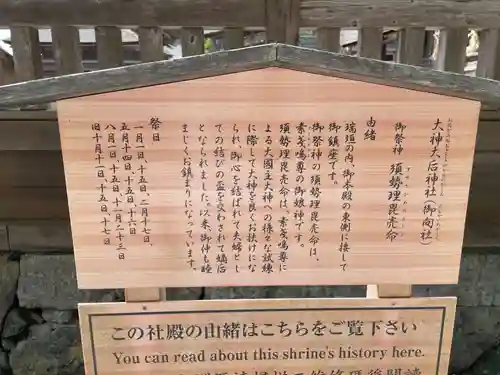 大神大后神社(御向社)
御祭神 須勢理毘売命
由緒
瑞垣の内、御本殿の東側に接して
御鎮座です。
御祭神の須勢理毘売命は、
素戔嗚尊の御娘神です。
須勢理毘売命は、素戔嗚尊に
よる大国主大神への様々な試練
に際して大神を良くお扶けにな
られ、御心を結ばれて夫婦とし
ての結びの盃を交わされて嫡后
となられました。以来、御仲も睦
まじくお鎮まりになっています。
祭日
一月一日、十五日、二月十七日、
五月十四日、十五日、十六日
八月一日、十五日、十一月二十三日
旧十月十一日、十五日、十七日
この社殿の由緒はこちらをご覧下さい
You can read about this shrine's history here.